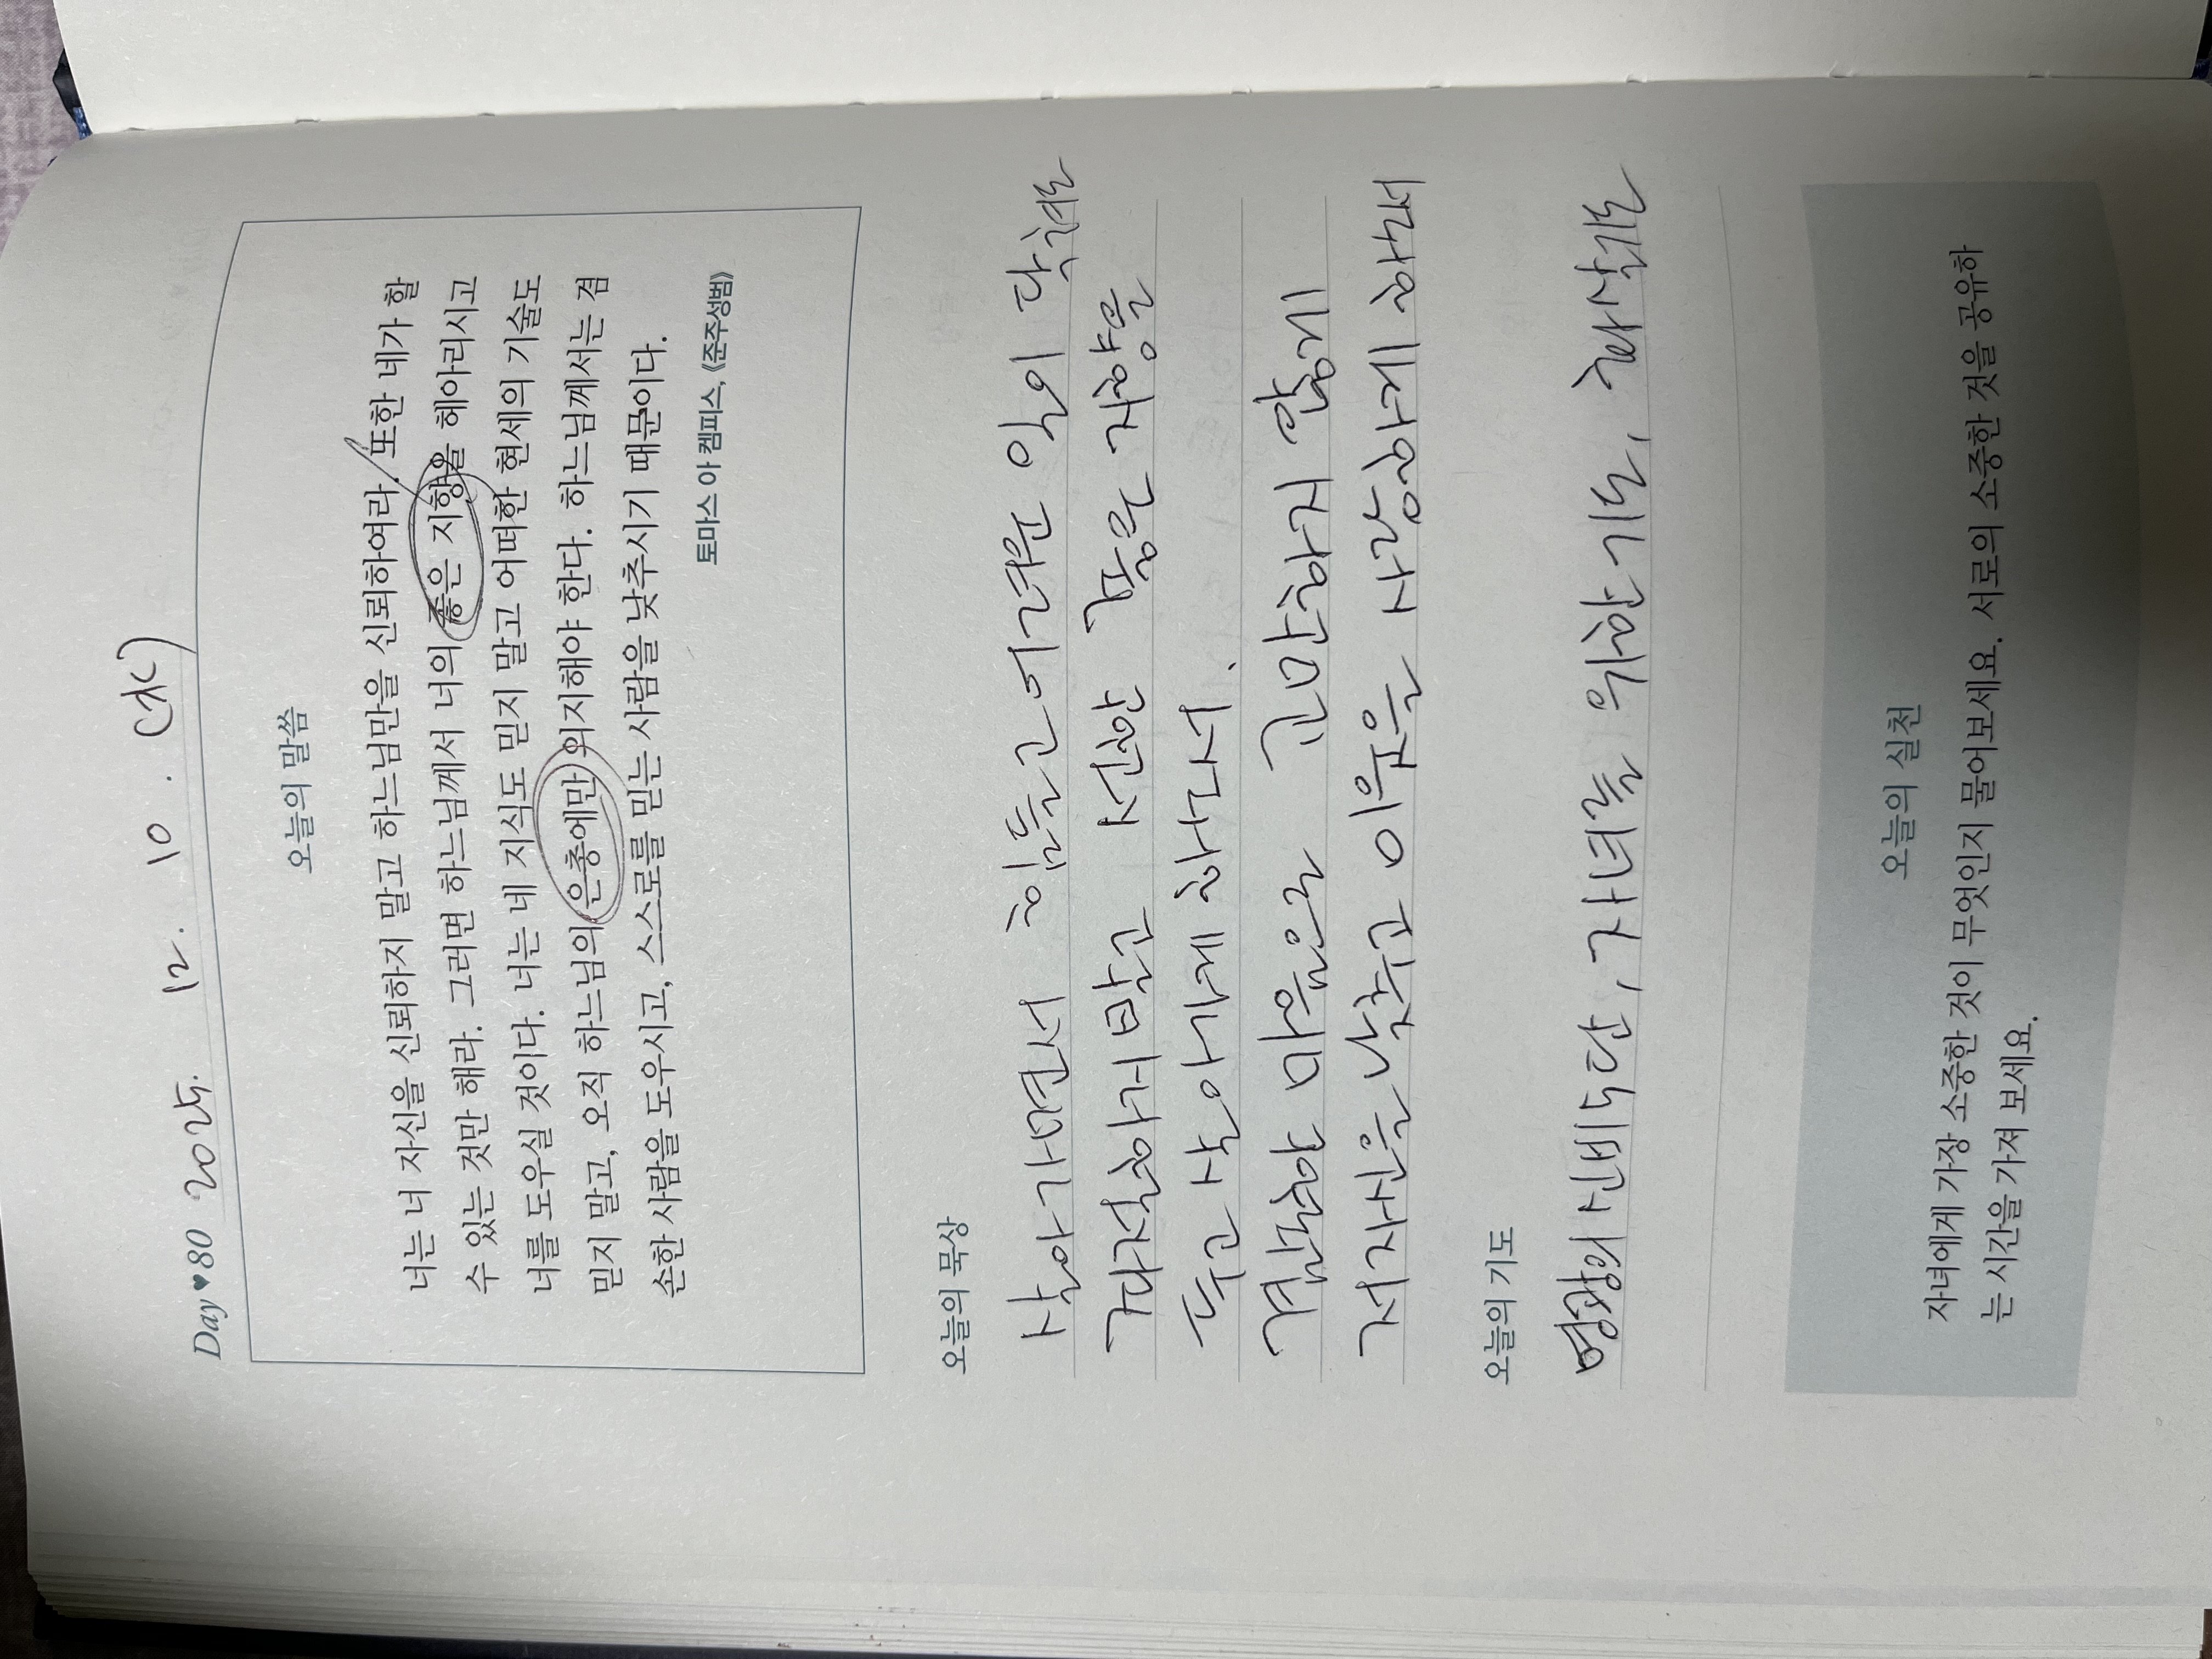 Day♥80 2025. 12. 10. (水)
오늘의 말씀
너는 너 자신을 신뢰하지 말고 하느님만을 신뢰하여라. 또한 네가 할
수 있는 것만 해라. 그러면 하느님께서 너의 좋은 지향을 헤아리시고
너를 도우실 것이다. 너는 네 지식도 믿지 말고 어떠한 현세의 기술도
믿지 말고, 오직 하느님의 은총에만 의지해야 한다. 하느님께서는 겸
손한 사람을 도우시고, 스스로를 믿는 사람을 낮추시기 때문이다.
토마스 아 켐피스, 《준주성범》
오늘의 묵상
살아가면서 힘들고 어려운 일이 닥쳐도
좌절하거 말고 선한 좋은 지향을
두고 살아가게 하소서.
겸손한 마음으로 교만하지 않게
저 자신을 낮추고 이웃을 사랑하게 하소서
오늘의 기도
영광의 신비 5단, 자녀를 위한 기도, 화살기도
오늘의 실천
자녀에게 가장 소중한 것이 무엇인지 물어보세요. 서로의 소중한 것을 공유하
는 시간을 가져 보세요.